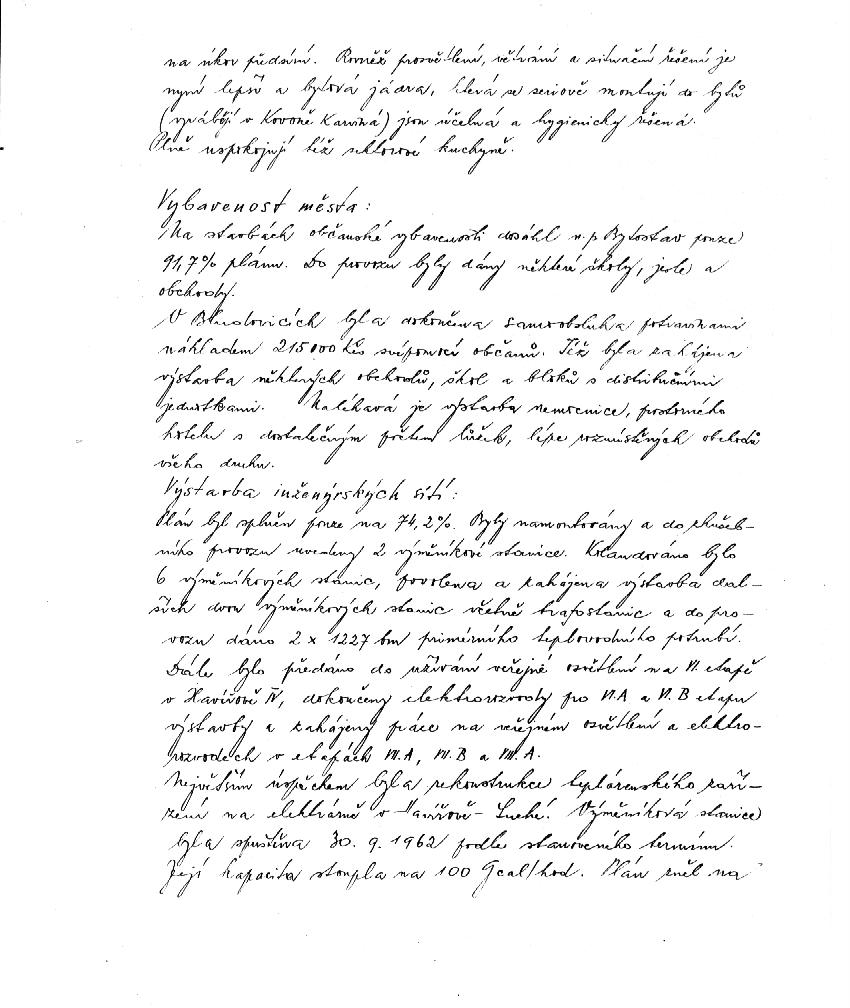 na úkor předsíní. Rovněž prosvětlení, větrání a situační řešení je
nyní lepší a bytová jádra, která se seriově montují do bytů
(vyrábějí v Kovoně Karviná) jsou účelná a hygienicky řešená.
Plně uspokojují též sektorové kuchyně.
Vybavenost města:
Na stavbách občanské vybavenosti dosáhl n.p. Bytostav pouze
91,7% plánu. Do provozu byly dány některé školy, jesle a
obchody.
V Bludovicích byla dokončena samoobsluha potravinami
nákladem 215 000 Kčs svépomocí občanů. Též byla zahájena
výstavba některých obchodů, škol a bloků s distribučními
jednotkami. Naléhavá je výstavba nemocnice, prostorného
hotelu s dostatečným počtem lůžek, lépe rozmístěných obchodů
všeho druhu.
Výstavba inženýrských sítí:
Plán byl splněn pouze na 74,2%. Byly namontovány a do zkušeb-
ního provozu uvedeny 2 výměníkové stanice. Kolaudováno bylo
6 výměníkových stanic, povolena a zahájena výstavba dal-
ších dvou výměníkových stanic včetně trafostanic a do pro-
vozu dáno 2 x 1227 bm primérního teplovodního potrubí.
Dále bylo předáno do užívání veřejné osvětlení na VI. etapě
v Havířově IV, dokončeny elektrorozvody pro VI.A a VI.B etapu
výstavby a zahájeny práce na veřejném osvětlení a elektro-
rozvodech v etapách VII.A, VII.B a VIII.A.
Největším úspěchem byla rekonstrukce teplárenského zaří-
zení na elektrárně v Havířově - Suché. Výměníková stanice
byla spuštěna 30. 9. 1962 podle stanoveného termínu.
Její kapacita stoupla na 100 Gcal/hod. Plán zněl na